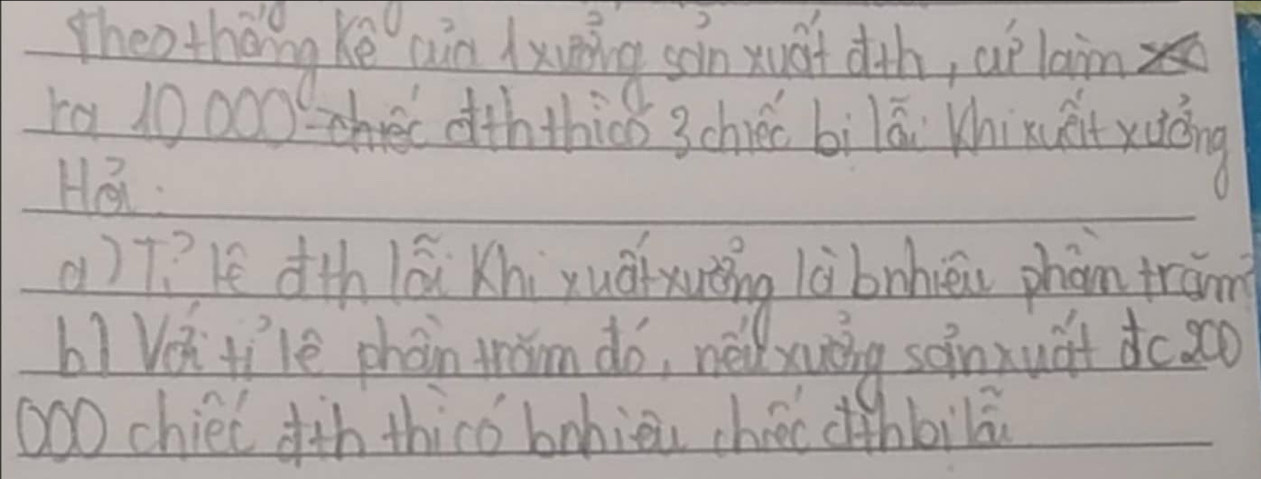 Theo thống kê của 1 xưởng sản xuất đth, cứ làm
ra 10 000 chiếc đth thì có 3 chiếc bị lỗi khi xuất xưởng
Hỏi:
a) Tỉ lệ đth lỗi khi xuất xưởng là bnhiêu phần trăm?
b) Với tỉ lệ phần trăm đó, nếu xưởng sản xuất đc 200
000 chiếc đth thì có bnhiêu chiếc đth bị lỗi